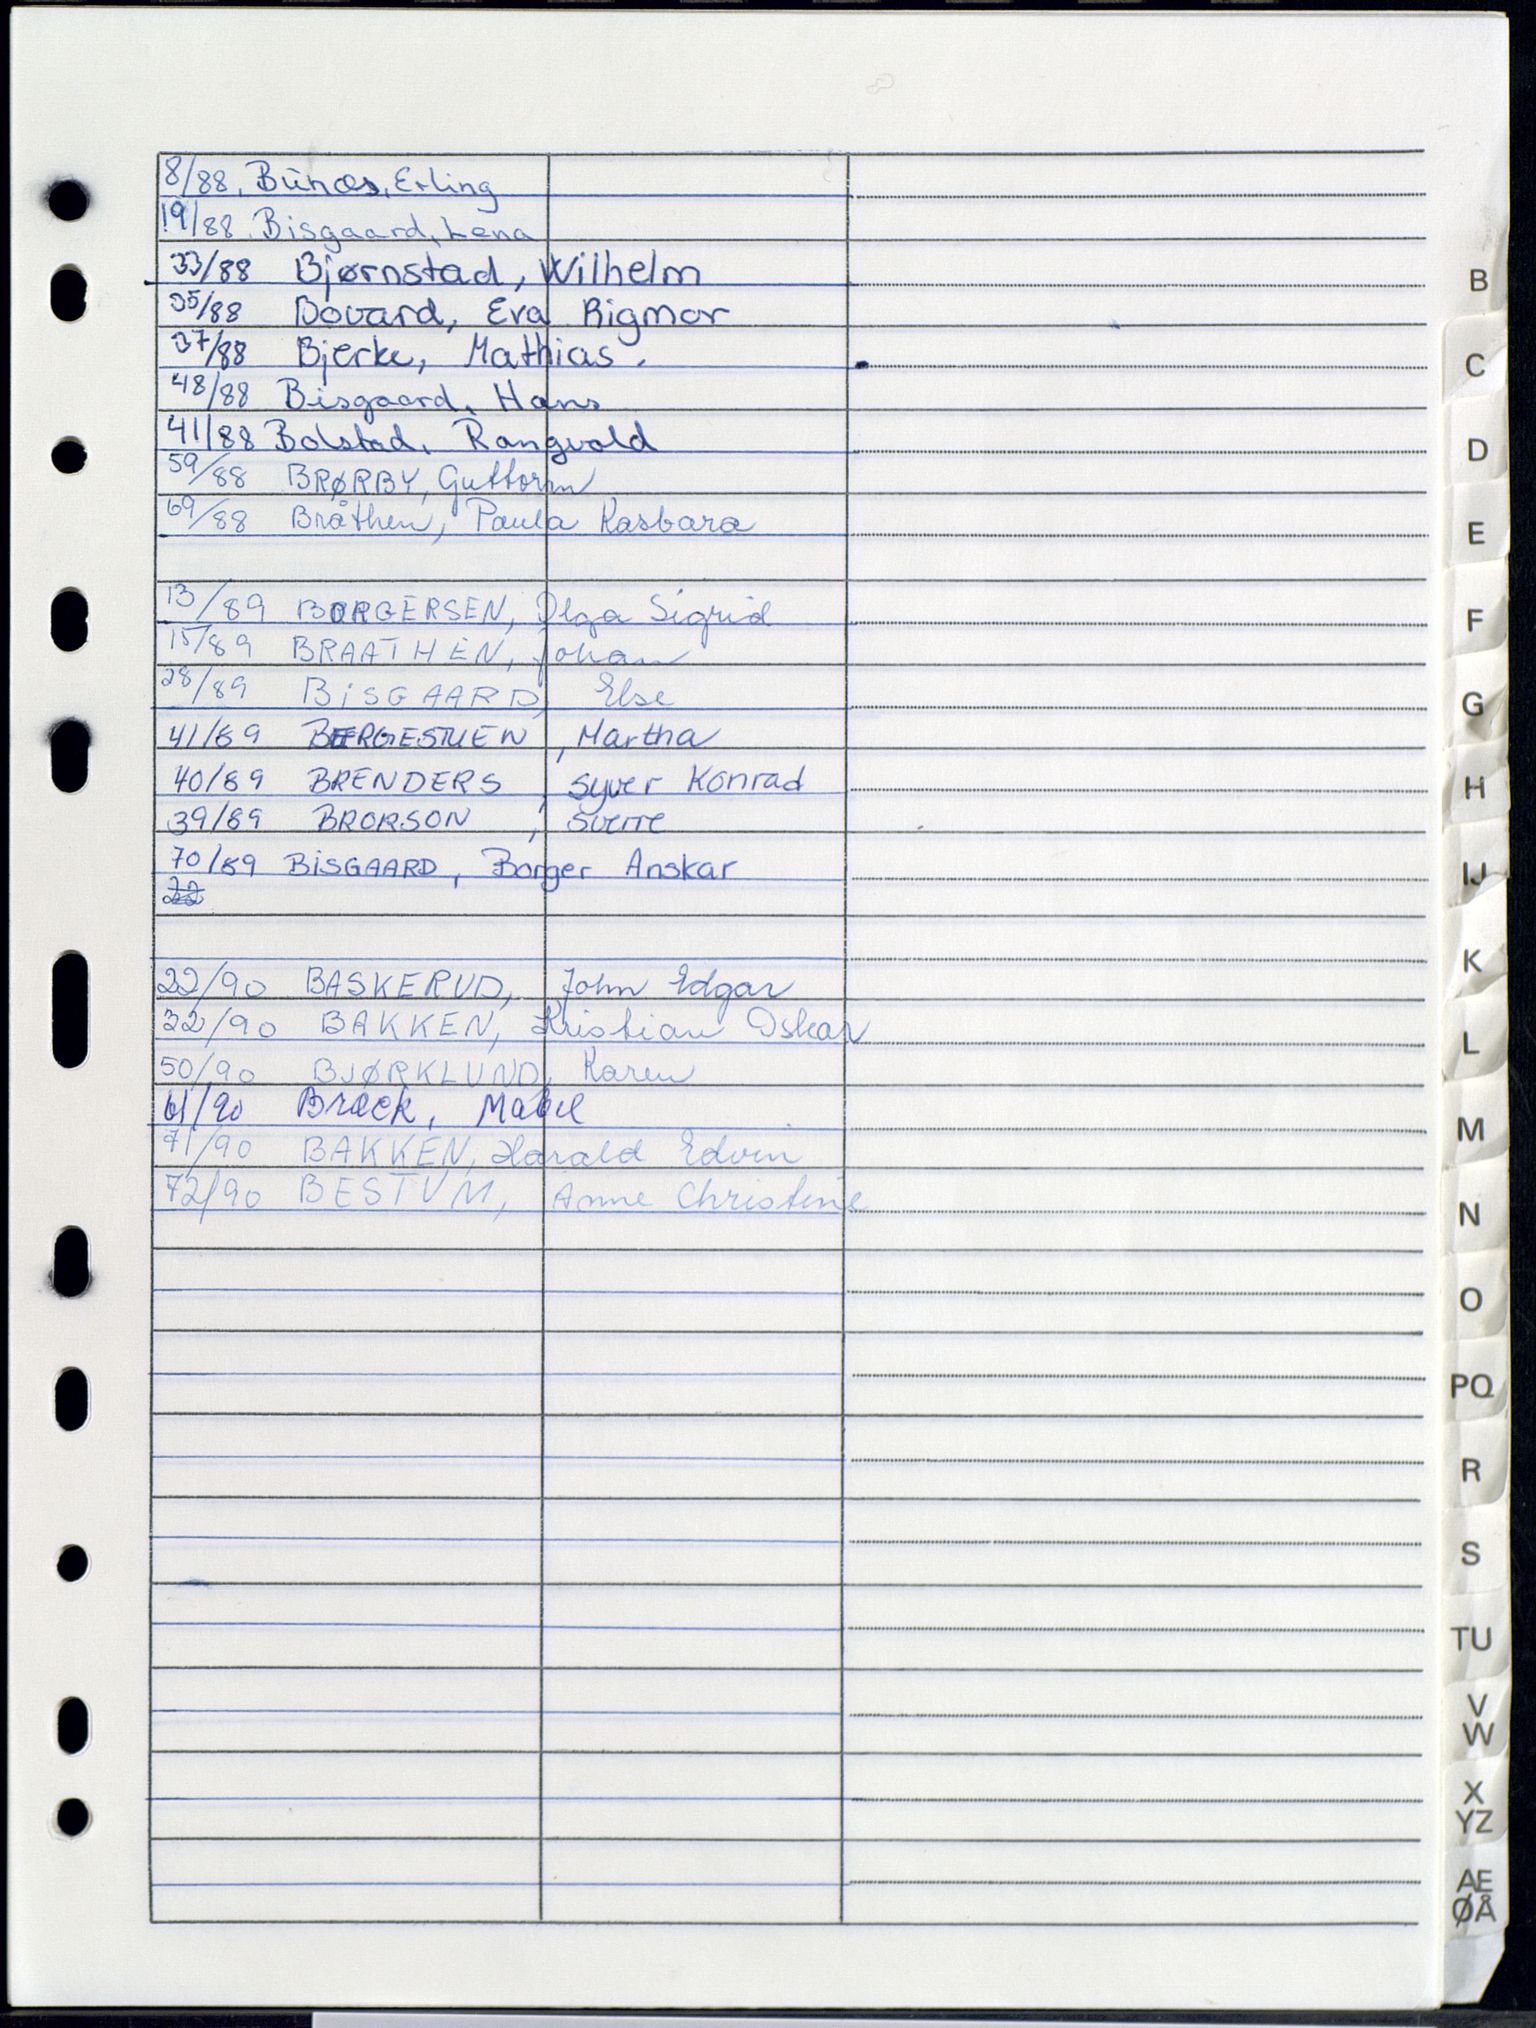 8/88, Bunæs, Erling
19/88. Bisgaard, Lena
33/88 Bjørnstad, Wilhelm
35/88 Bovard, Eva Rigmor
37/88 Bjerke, Mathias.
48/88 Bisgaard, Hans
41/88 Bolstad, Rangvald
59/88 BRØRBY, Guttorm
69/88 Bråthen, Paula Kasbara
13/89 BORGERSEN, Olga Sigrid
15/89 BRAATHEN, Johan
28/89 BISGAARD, Else
41/89 BERGESTUEN, Martha
40/89 BRENDERS, Syver Konrad
39/89 BRORSON, Sverre
70/89 BISGAARD, Borger Anskar
22
22/90 BASKERUD, John Edgar
32/90 BAKKEN, Kristian Oskar
50/90 BJØRKLUND, Karen
61/90 Bræck, Mabel
71/90 BAKKEN, Harald Edvin
72/90 BESTUM, Anne Christine
B
C
D
E
F
G
H
IJ
K
L
M
N
O
PQ
R
S
TU
V
W
X
YZ
AE
ØÅ